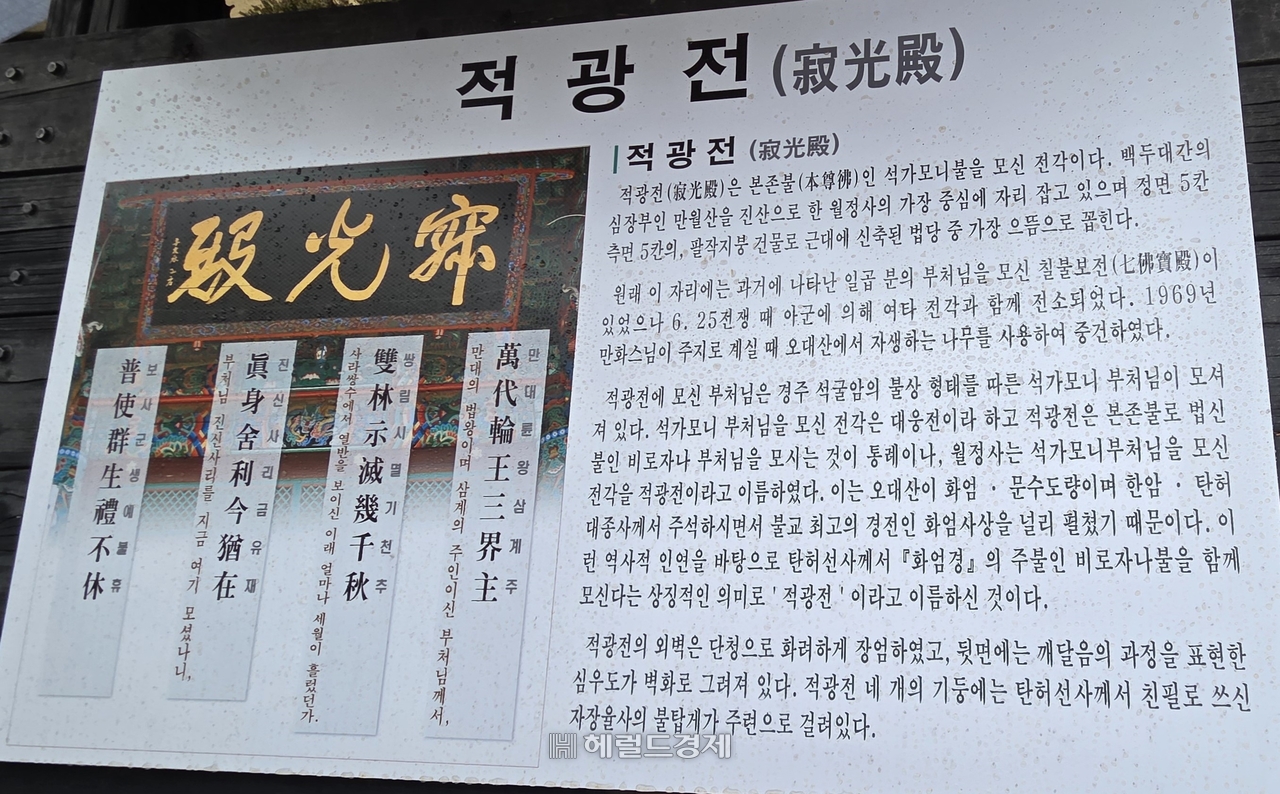 적 광 전 (寂光殿)
적 광 전 (寂光殿)
적광전(寂光殿)은 본존불(本尊佛)인 석가모니불을 모신 전각이다. 백두대간의
심장부인 만월산을 진산으로 한 월정사의 가장 중심에 자리 잡고 있으며 정면 5칸
측면 5칸의, 팔작지붕 건물로 근대에 신축된 법당 중 가장 으뜸으로 꼽힌다.
원래 이 자리에는 과거에 나타난 일곱 분의 부처님을 모신 칠불보전(七佛寶殿)이
있었으나 6. 25전쟁 때 아군에 의해 여타 전각과 함께 전소되었다. 1969년
만화스님이 주지로 계실 때 오대산에서 자생하는 나무를 사용하여 중건하였다.
적광전에 모신 부처님은 경주 석굴암의 불상 형태를 따른 석가모니 부처님이 모셔
져 있다. 석가모니 부처님을 모신 전각은 대웅전이라 하고 적광전은 본존불로 법신
불인 비로자나 부처님을 모시는 것이 통례이나, 월정사는 석가모니부처님을 모신
전각을 적광전이라고 이름하였다. 이는 오대산이 화엄 · 문수도량이며 한암 · 탄허
대종사께서 주석하시면서 불교 최고의 경전인 화엄사상을 널리 펼쳤기 때문이다. 이
런 역사적 인연을 바탕으로 탄허선사께서 『화엄경』의 주불인 비로자나불을 함께
모신다는 상징적인 의미로 ' 적광전 ' 이라고 이름하신 것이다.
적광전의 외벽은 단청으로 화려하게 장엄하였고, 뒷면에는 깨달음의 과정을 표현한
심우도가 벽화로 그려져 있다. 적광전 네 개의 기둥에는 탄허선사께서 친필로 쓰신
자장율사의 불탑게가 주련으로 걸려있다.
寂光殿
만대륜왕삼계주
萬代輪王三界主
만대의 법왕이며 삼계의 주인이신 부처님께서,
쌍림시멸기천추
雙林示滅幾千秋
사라쌍수에서 열반을 보이신 이래 얼마나 세월이 흘렀던가.
진신사리금유재
眞身舍利今猶在
부처님 진신사리를 지금 여기 모셨나니,
보사군생예불휴
普使群生禮不休
헤럴드경제